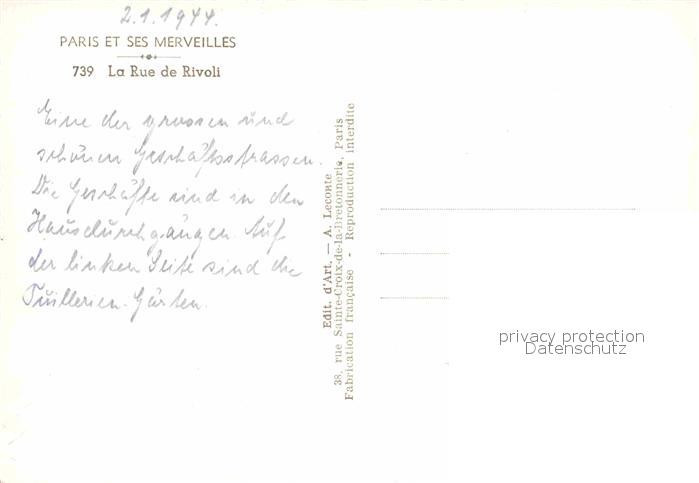 2.1.1944.
PARIS ET SES MERVEILLES
739 La Rue de Rivoli
Eine der grossen und
schönen Geschäftsstrassen.
Die Geschäfte sind in den
Hausdurchgängen. Auf
der linken Seite sind die
Tuillerien-Gärten.
Edit. d'Art. — A. Leconte
38, rue Sainte-Croix-de-la-Bretonnerie, Paris
Fabrication française - Reproduction interdite
privacy protection
Datenschutz